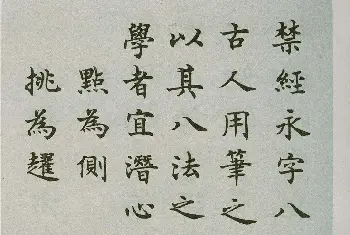 禁經永字八
古人用筆之
以其八法之
學者宜潛心
點為側
挑為趯